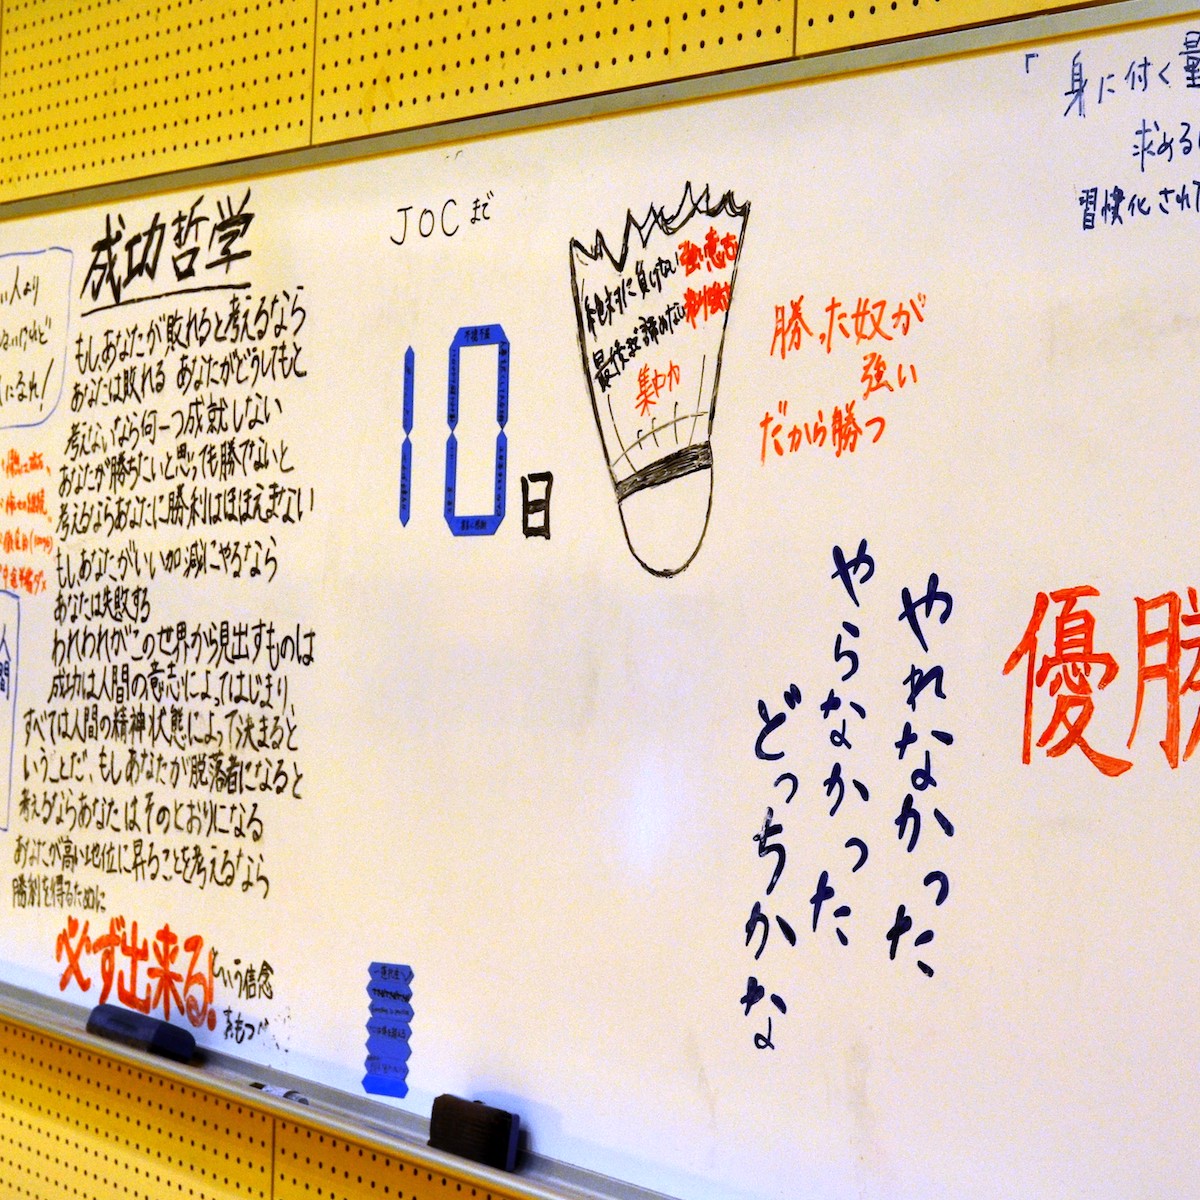 人より
になれ!
人間
成功哲学
もしあなたが敗れると考えるなら
あなたは敗れる あなたがどうしてもと
考えないなら何一つ成就しない
あなたが勝ちたいと思っても勝てないと
考えるならあなたに勝利はほほえまない
もしあなたがいい加減にやるなら
あなたは失敗する
われわれがこの世界から見出すものは
成功は人間の意志によってはじまり、
すべては人間の精神状態によって決まると
いうことだ、もしあなたが脱落者になると
考えるならあなたはそのとおりになる
あなたが高い地位に昇ることを考えるなら
勝利を得るために
必ず出来る!という信念
をもつべ
JOCまで
10日
絶対に負けない強い意志
最後まで諦めない粘り強さ
集中力
勝った奴が
強い
だから勝つ
やれなかった
やらなかった
どっちかな
優勝
「身に付く量
求める
習慣化され